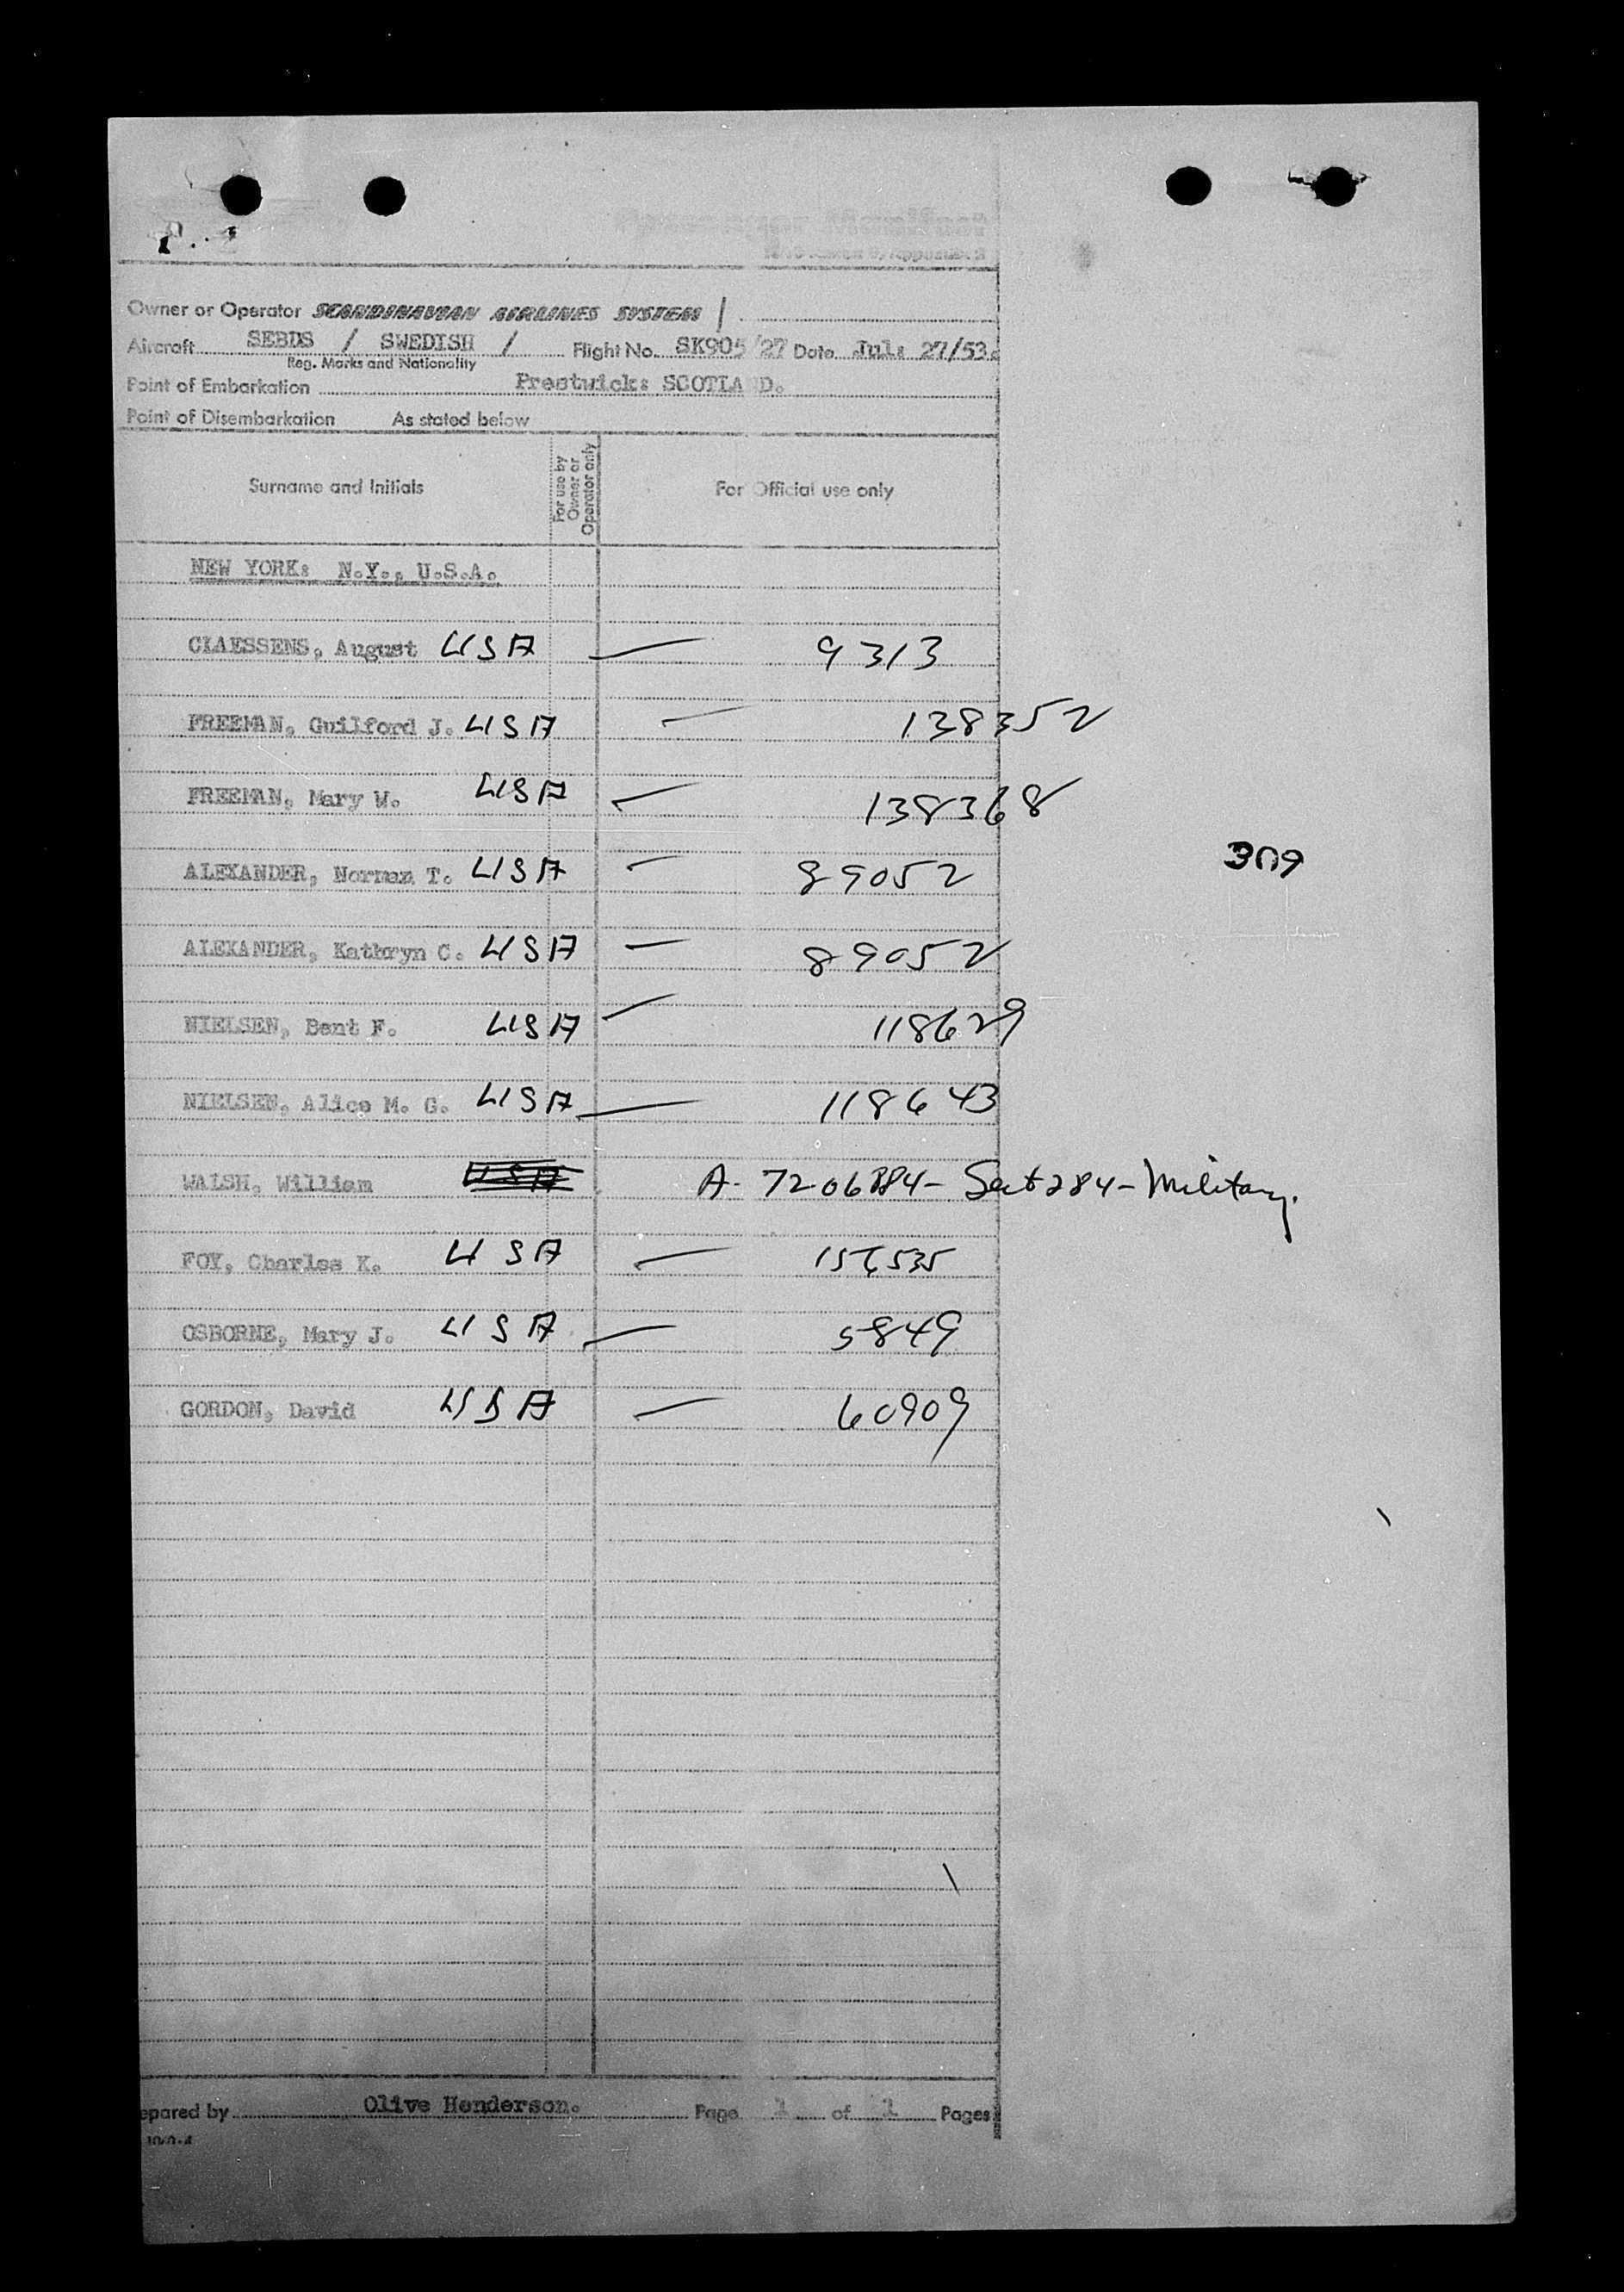 Owner or Operator SCANDINAVIAN AIRLINES SYSTEM /
Aircraft SEBDS / SWEDISH / Flight No. SK905/27 Date Jul: 27/53.
Reg. Marks and Nationality
Point of Embarkation Prestwick: SCOTLAND.
Point of Disembarkation As stated below
Surname and Initials For use by Owner or Operator only For Official use only
NEW YORK: N.Y., U.S.A.
CLAESSENS, August USA — 9313
FREEMAN, Guilford J. USA — 138352
FREEMAN, Mary W. USA — 138368
309
ALEXANDER, Norman T. USA — 89052
ALEXANDER, Kathryn C. USA — 89052
NIELSEN, Bent F. USA — 118629
NIELSEN, Alice M. G. USA — 118643
WALSH, William USA A- 7206884 - Sect 284 - Military.
FOY, Charles K. USA — 156535
OSBORNE, Mary J. USA — 5849
GORDON, David USA — 60909
epared by Olive Henderson. Page 1 of 1 Pages